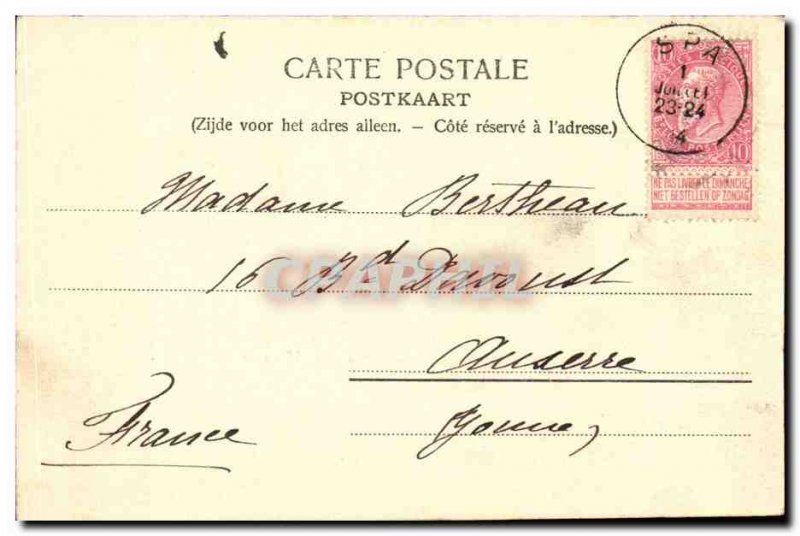 CARTE POSTALE
POSTKAART
(Zijde voor het adres alleen. – Côté réservé à l'adresse.)
SPA
1
JUILLET
23-24
4
10
NE PAS LIVRER LE DIMANCHE
NIET BESTELLEN OP ZONDAG
Madame Bertheau
16 Bd Davoust
Auxerre
Yonne
France